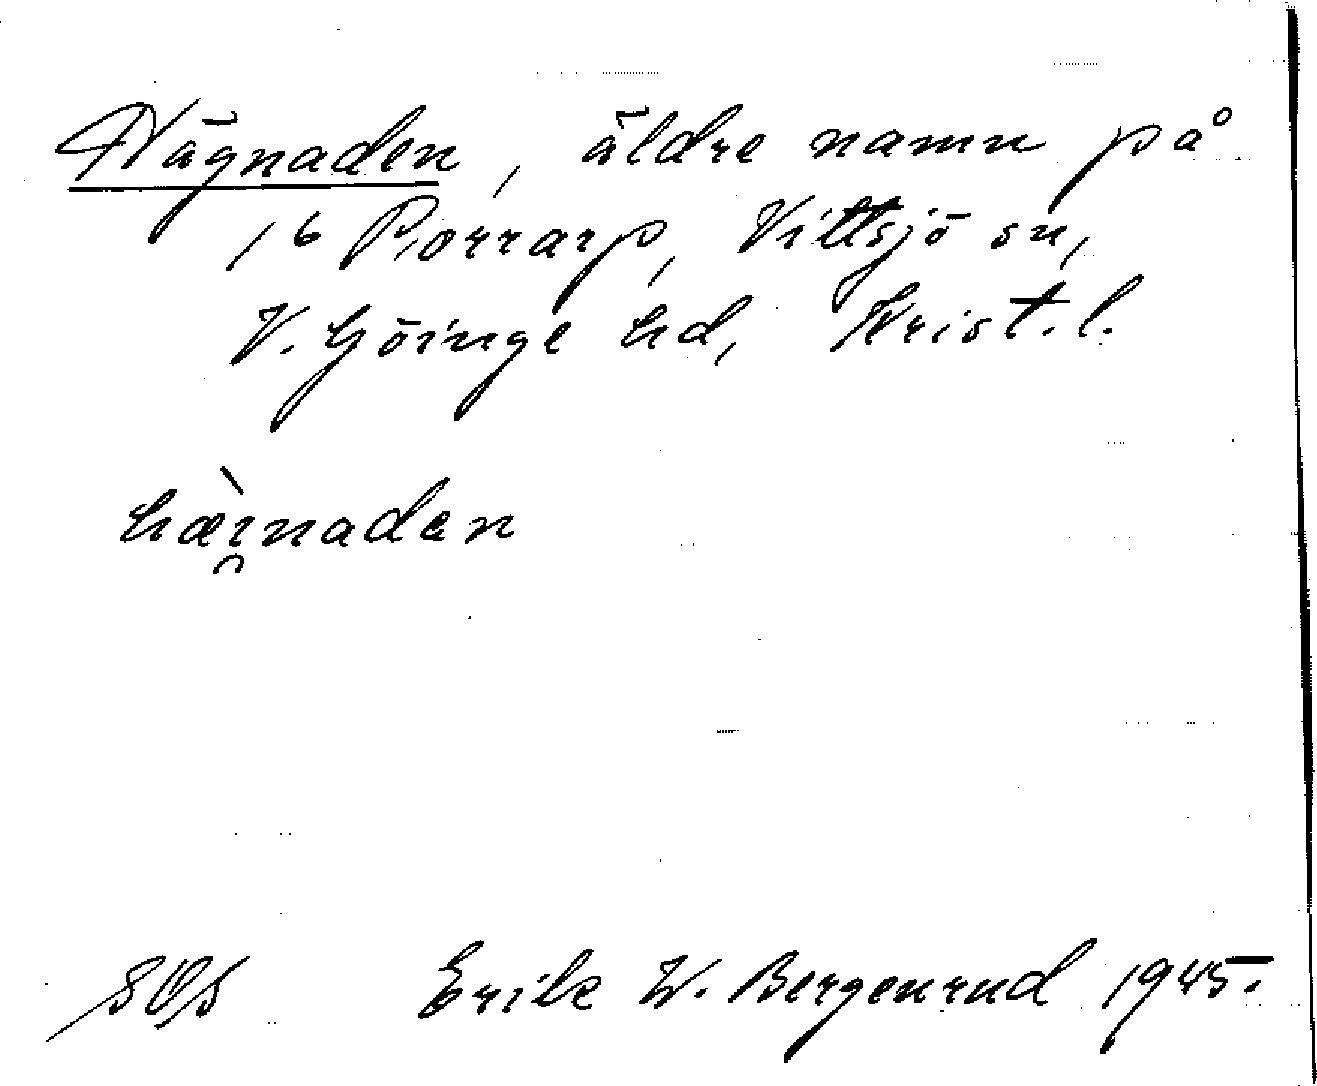 Hägnaden, äldre namn på
16 Porrarp, Vittsjö sn,
V. Göinge hd, Krist. l.
hæ̀i̯nadan
SOS Erik W. Bergenrud 1945.